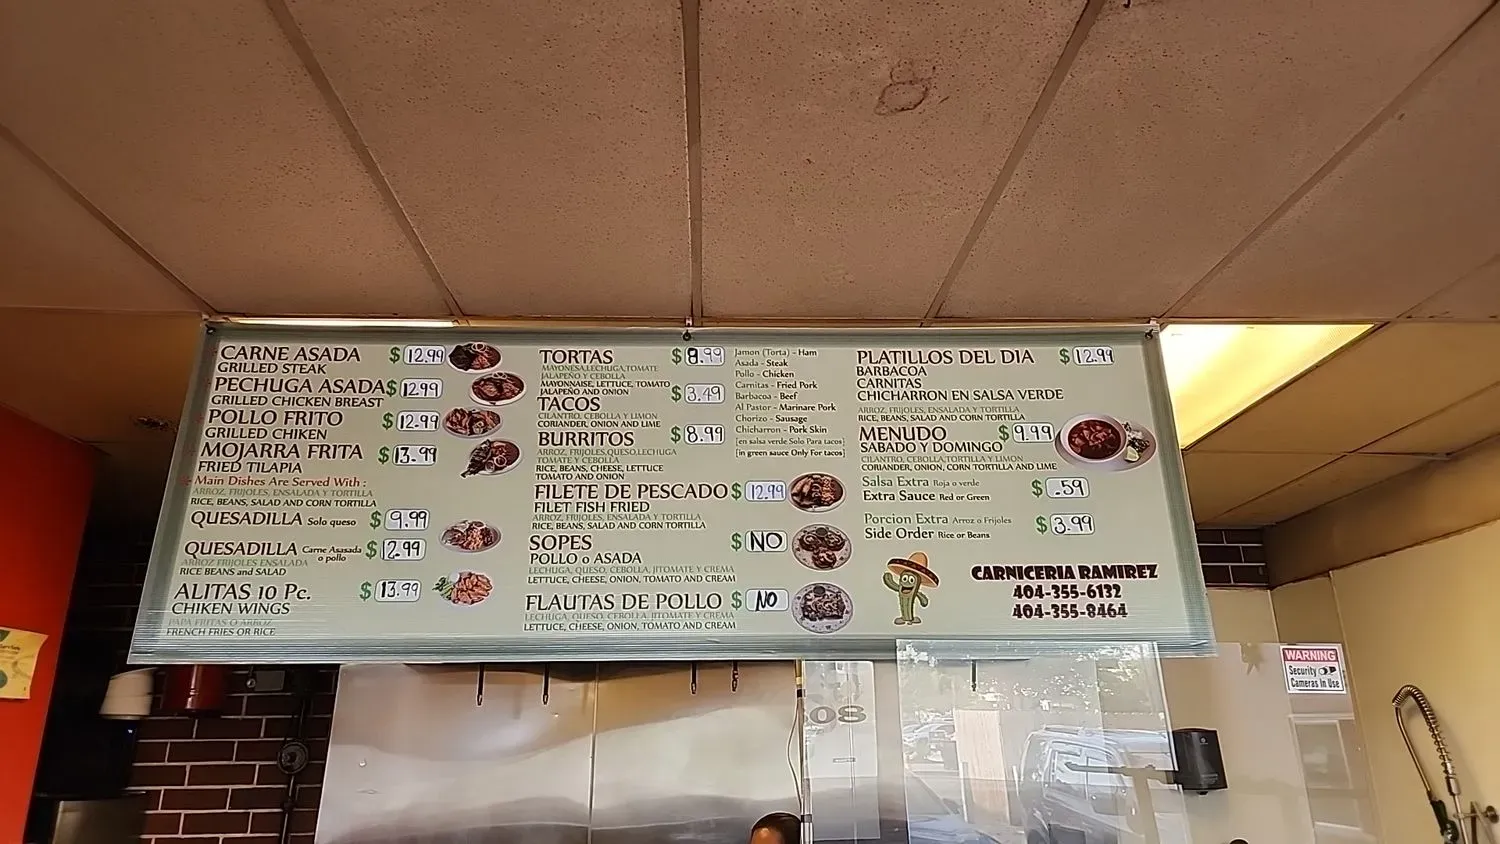 CARNE ASADA $12.99
GRILLED STEAK
PECHUGA ASADA $12.99
GRILLED CHICKEN BREAST
POLLO FRITO $12.99
GRILLED CHIKEN
MOJARRA FRITA $13.99
FRIED TILAPIA
Main Dishes Are Served With :
ARROZ, FRIJOLES, ENSALADA Y TORTILLA
RICE, BEANS, SALAD AND CORN TORTILLA
QUESADILLA Solo queso $9.99
QUESADILLA Carne Asasada o pollo $12.99
ARROZ FRIJOLES ENSALADA
RICE BEANS and SALAD
ALITAS 10 Pc. $13.99
CHIKEN WINGS
PAPA FRITAS O ARROZ
FRENCH FRIES OR RICE
TORTAS $8.99
MAYONESA,LECHUGA,TOMATE
JALAPEÑO Y CEBOLLA
MAYONNAISE, LETTUCE, TOMATO
JALAPEÑO AND ONION
TACOS $3.49
CILANTRO, CEBOLLA Y LIMON
CORIANDER, ONION AND LIME
BURRITOS $8.99
ARROZ, FRIJOLES,QUESO,LECHUGA
TOMATE Y CEBOLLA
RICE, BEANS, CHEESE, LETTUCE
TOMATO AND ONION
FILETE DE PESCADO $12.99
FILET FISH FRIED
ARROZ, FRIJOLES, ENSALADA Y TORTILLA
RICE, BEANS, SALAD AND CORN TORTILLA
SOPES $NO
POLLO o ASADA
LECHUGA, QUESO, CEBOLLA, JITOMATE Y CREMA
LETTUCE, CHEESE, ONION, TOMATO AND CREAM
FLAUTAS DE POLLO $NO
LECHUGA, QUESO, CEBOLLA, JITOMATE Y CREMA
LETTUCE, CHEESE, ONION, TOMATO AND CREAM
Jamon (Torta) - Ham
Asada - Steak
Pollo - Chicken
Carnitas - Fried Pork
Barbacoa - Beef
Al Pastor - Marinare Pork
Chorizo - Sausage
Chicharron - Pork Skin
[en salsa verde Solo Para tacos]
[in green sauce Only For tacos]
PLATILLOS DEL DIA $12.99
BARBACOA
CARNITAS
CHICHARRON EN SALSA VERDE
ARROZ, FRIJOLES, ENSALADA Y TORTILLA
RICE, BEANS, SALAD AND CORN TORTILLA
MENUDO $9.99
SABADO Y DOMINGO
CILANTRO, CEBOLLA,TORTILLA Y LIMON
CORIANDER, ONION, CORN TORTILLA AND LIME
Salsa Extra Roja o verde $.59
Extra Sauce Red or Green
Porcion Extra Arroz o Frijoles $3.99
Side Order Rice or Beans
CARNICERIA RAMIREZ
404-355-6132
404-355-8464
WARNING
Security
Cameras In Use